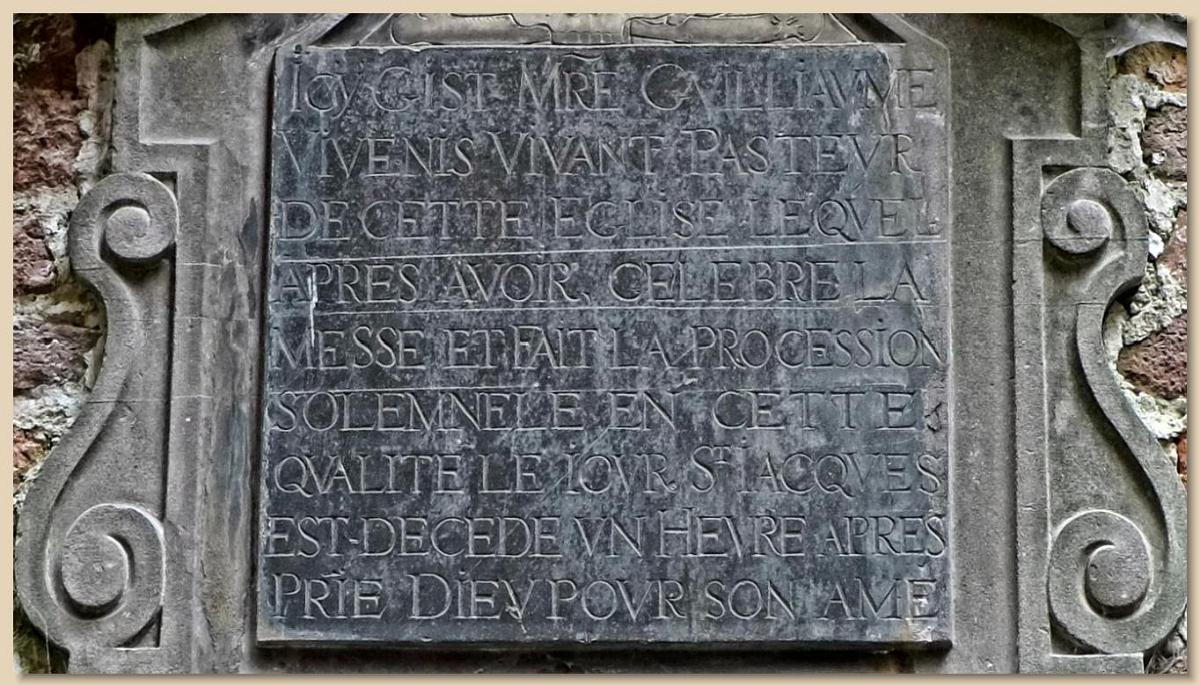 ICY GIST MRE GVILLIAVME
VIVENIS VIVANT PASTEVR
DE CETTE EGLISE LEQVEL
APRES AVOIR CELEBRE LA
MESSE ET FAIT LA PROCESSION
SOLEMNELE EN CETTE
QVALITE LE IOVR ST IACQVES
EST DECEDE VN HEVRE APRES
PRIE DIEV POVR SON AME